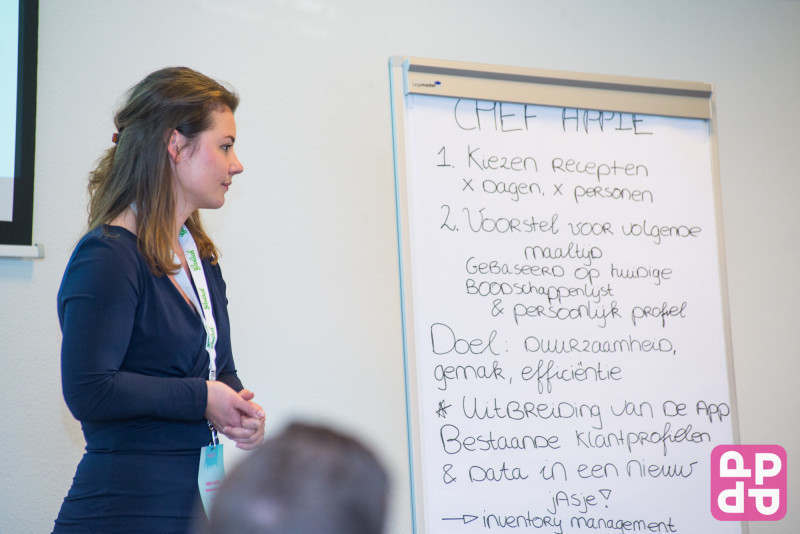 legamaster
CHEF APPIE
1. Kiezen recepten
x dagen, x personen
2. Voorstel voor volgende
maaltijd
Gebaseerd op huidige
Boodschappenlijst
& persoonlijk profiel
Doel: duurzaamheid,
gemak, efficiëntie
* Uitbreiding van de App
Bestaande klantprofielen
& data in een nieuw
jasje!
→ inventory management